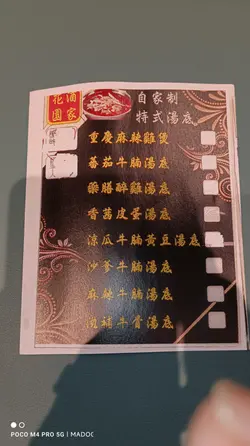 花酒
園家
自家制
特式湯底
重慶麻辣雞煲
蕃茄牛腩湯底
藥膳醉雞湯底
香茜皮蛋湯底
涼瓜牛腩黃豆湯底
沙爹牛腩湯底
麻辣牛腩湯底
滋補牛骨湯底
POCO M4 PRO 5G | MADO